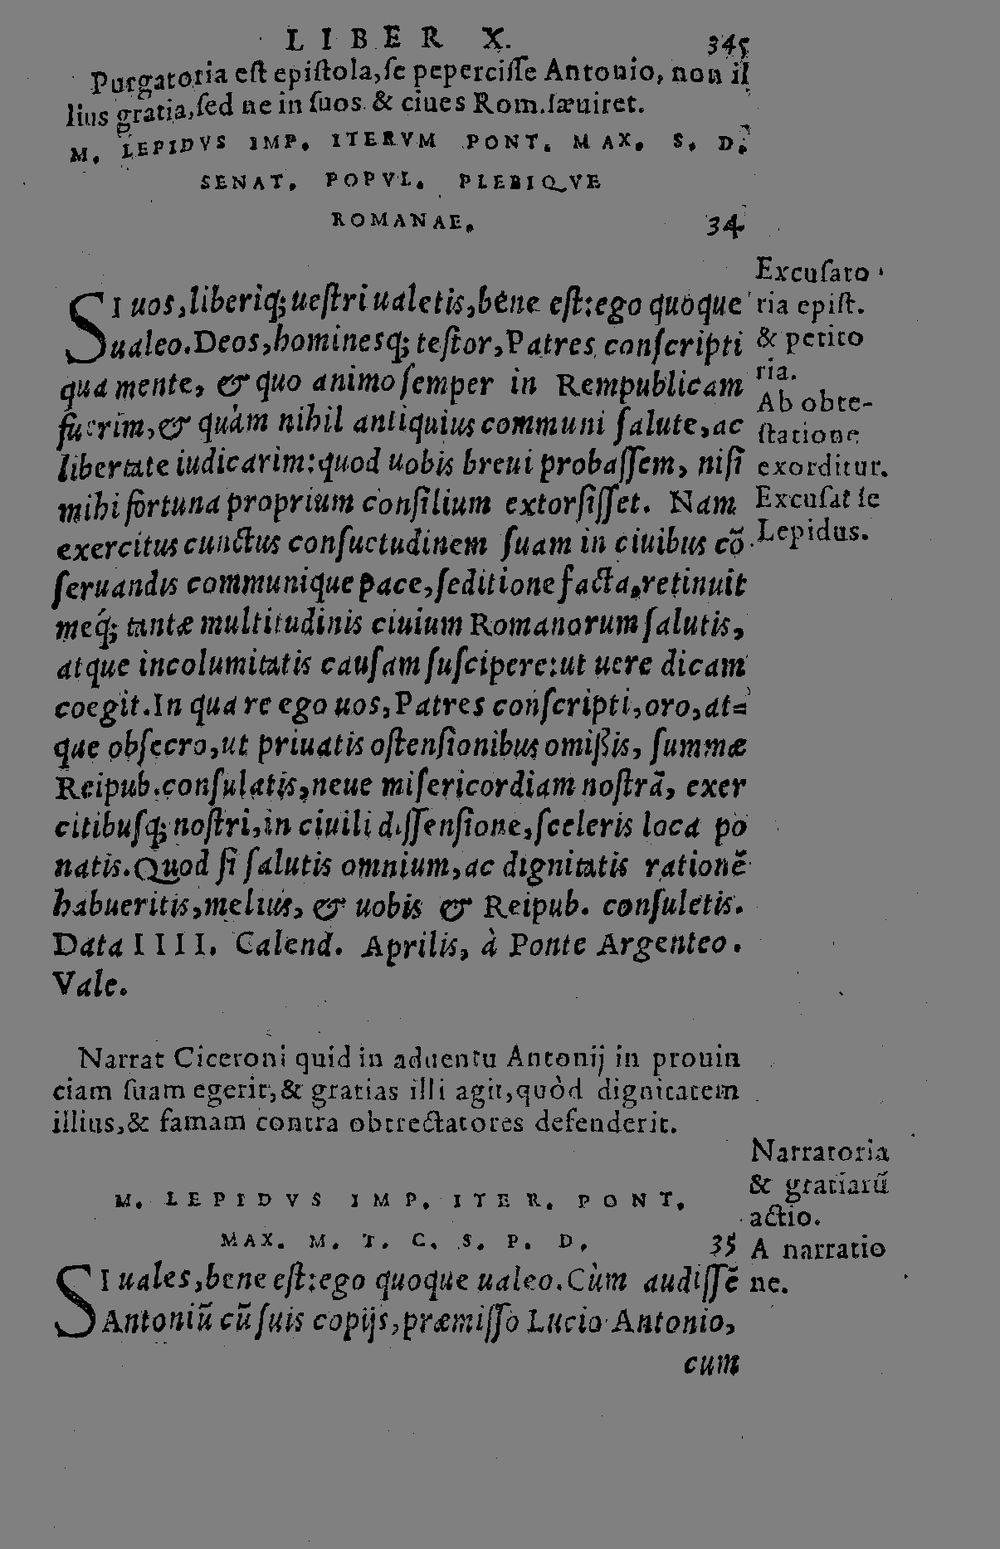 LIBER X. 345
Purgatoria est epistola, se pepercisse Antonio, non il
lius gratia, sed ne in suos & ciues Rom. sæuiret.
M. LEPIDVS IMP. ITERVM PONT. MAX. S. D.
SENAT. POPVL. PLEBIQVE
ROMANAE. 34
SI uos, liberiq; uestri ualetis, bene est: ego quoque
ualeo. Deos, hominesq; testor, Patres conscripti
qua mente, & quo animo semper in Rempublicam
fuerim, & quàm nihil antiquius communi salute, ac
libertate iudicarim: quod uobis breui probassem, nisi
mihi fortuna proprium consilium extorsisset. Nam
exercitus cunctus consuetudinem suam in ciuibus cõ
seruandis communique pace, seditione facta, retinuit
meq́; tantæ multitudinis ciuium Romanorum salutis,
atque incolumitatis causam suscipere: ut uere dicam
coegit. In qua re ego uos, Patres conscripti, oro, at=
que obsecro, ut priuatis ostensionibus omißis, summæ
Reipub. consulatis, neue misericordiam nostrã, exer
citibusq; nostri, in ciuili dissensione, sceleris loca po
natis. Quod si salutis omnium, ac dignitatis rationẽ
habueritis, melius, & uobis & Reipub. consuletis.
Data IIII. Calend. Aprilis, à Ponte Argenteo.
Vale.
Excusato
ria epist.
& petito
ria.
Ab obte-
statione
exorditur.
Excusat se
Lepidus.
Narrat Ciceroni quid in aduentu Antonij in prouin
ciam suam egerit, & gratias illi agit, quòd dignitatem
illius, & famam contra obtrectatores defenderit.
M. LEPIDVS IMP. ITER. PONT.
MAX. M. T. C. S. P. D. 35
SI uales, bene est: ego quoque ualeo. Cùm audissẽ
Antoniũ cũ suis copijs, præmisso Lucio Antonio,
cum
Narratoria
& gratiarũ
actio.
A narratio
ne.